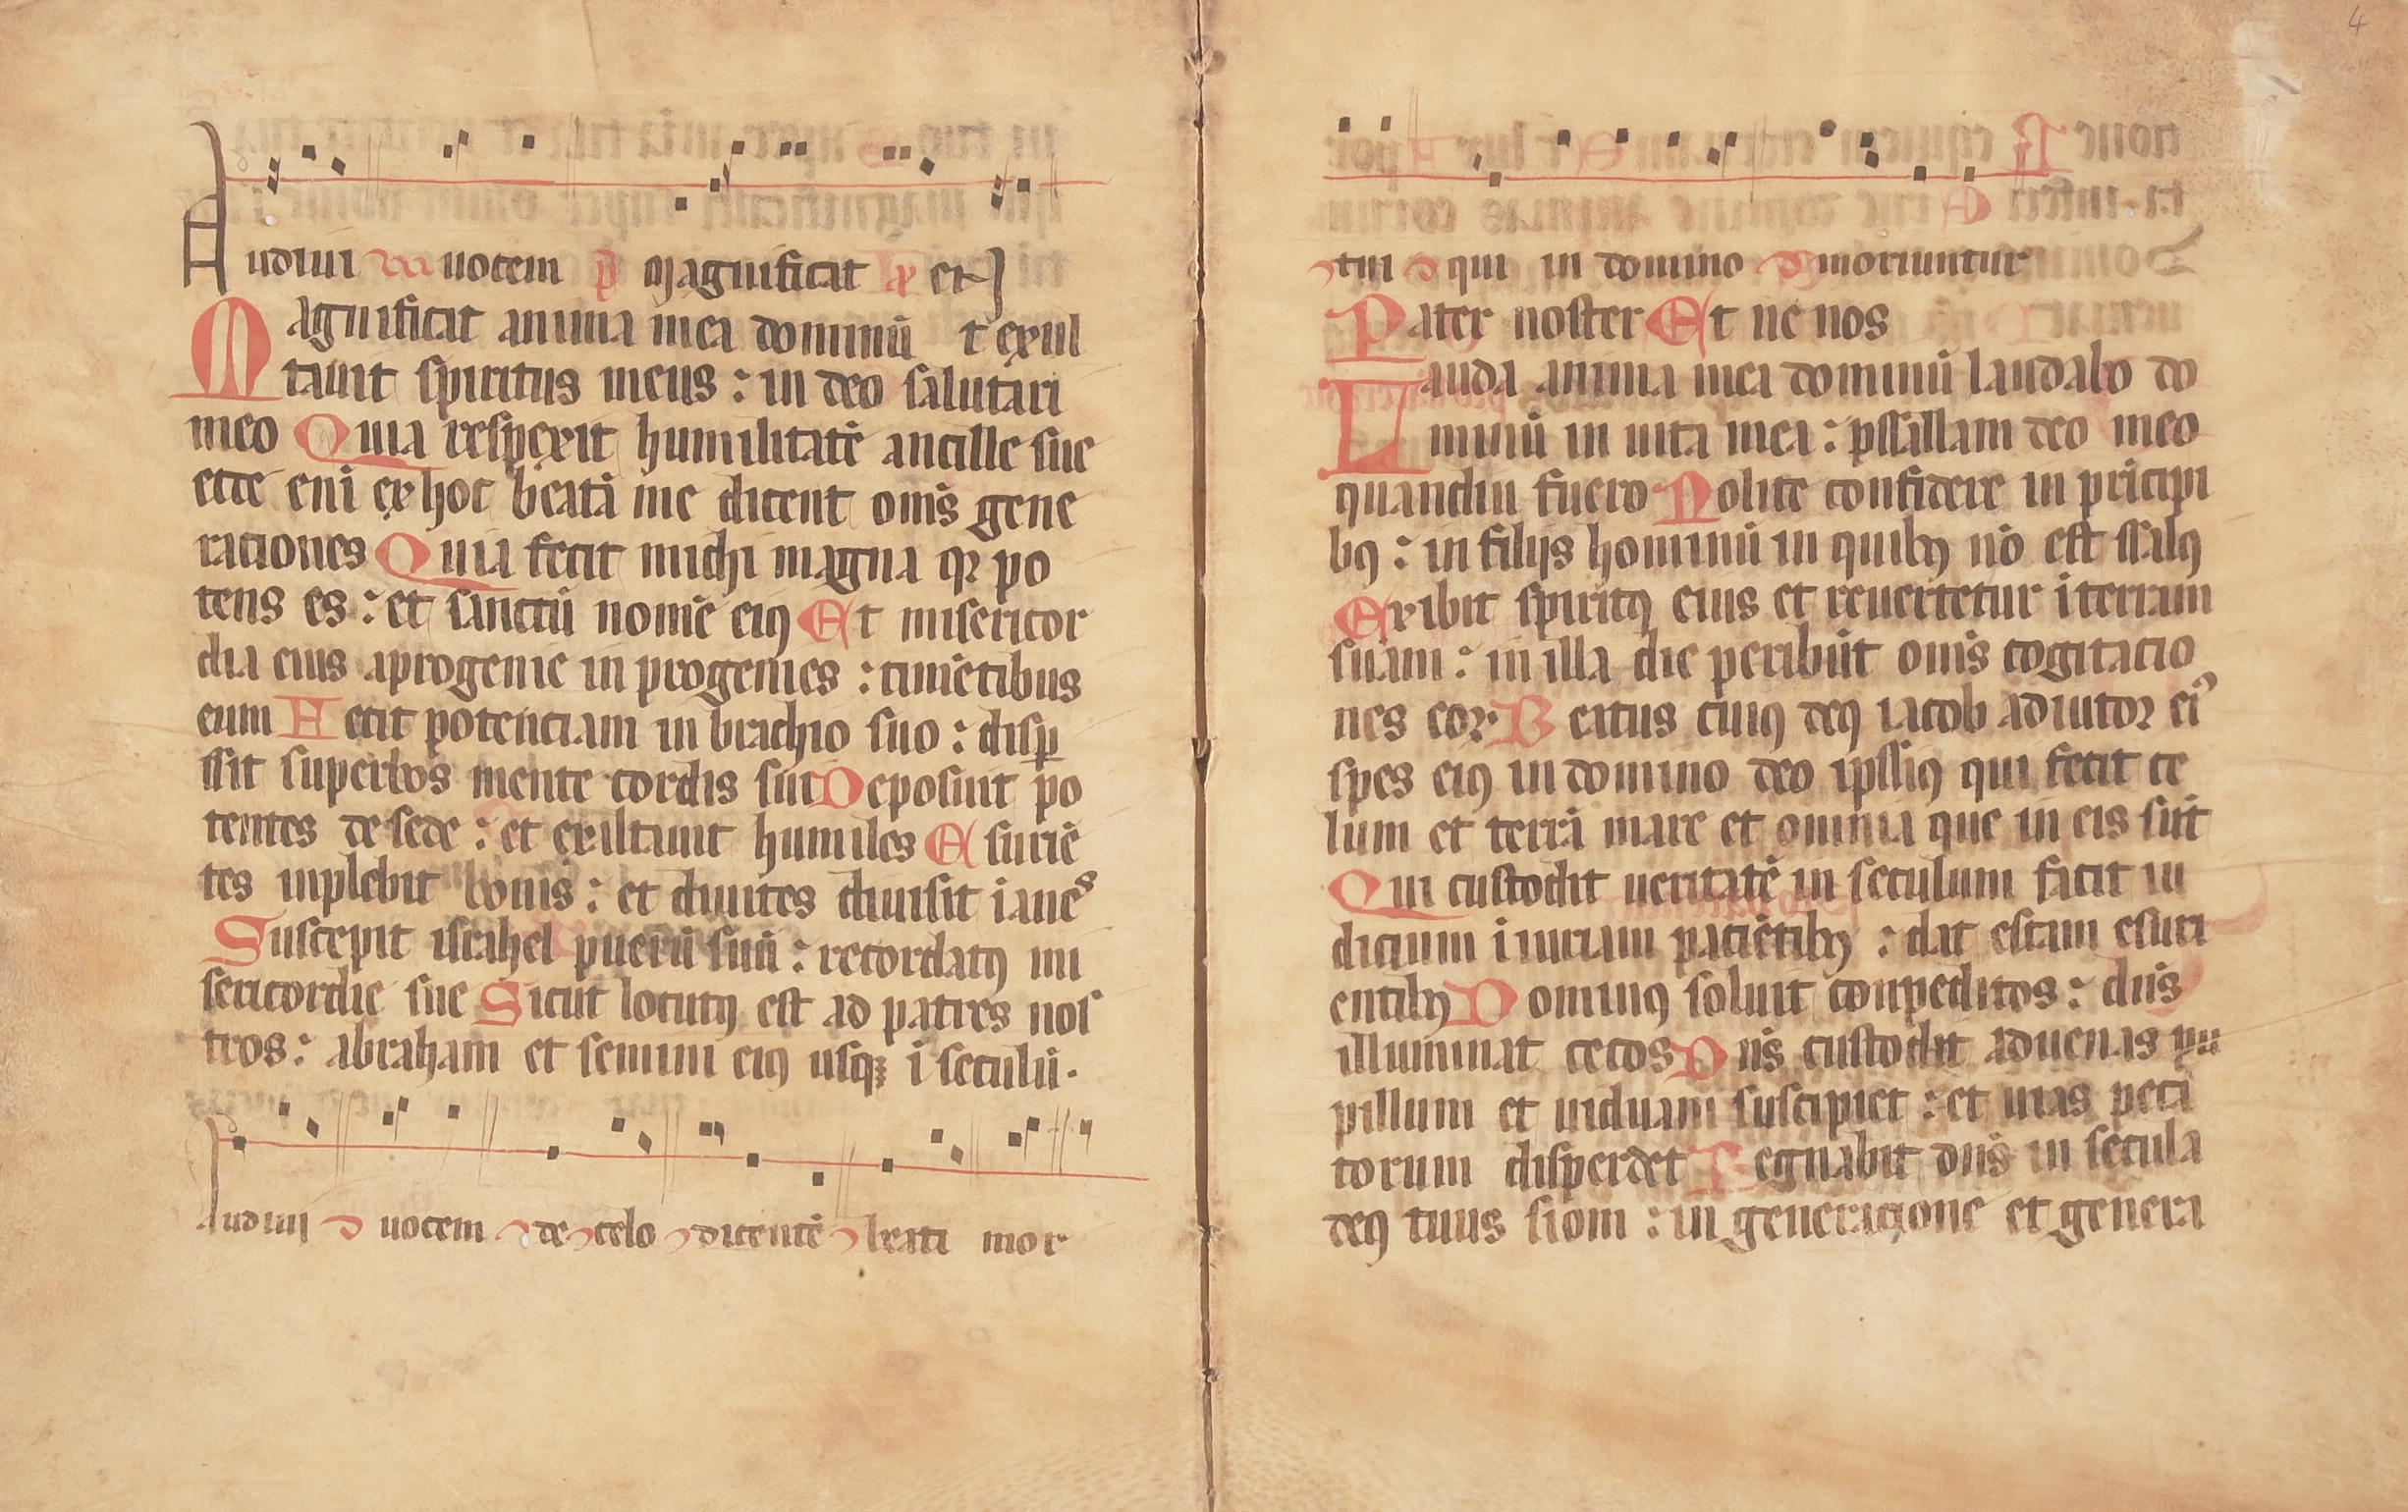 Audiui uocem p̄s magnificat et
Magnificat anima mea dominū t exul
tauit spiritus meus : in deo salutari
meo Quia respexit humilitatē ancille sue
ecce eni ex hoc beatā me dicent om̄s gene
rationes Quia fecit michi magna qꝛ po
tens es : et sanctū nomē eiꝰ Et misericor
dia eius aprogenie in progenies : timētibus
eum Fecit potenciam in brachio suo : disꝑ
ssit superbos mente cordis sui Deposuit po
tentes de sede : et exiltauit humiles Esuriē
tes inplebit bonis : et diuites diuisit i aues
Suscepit israhel puerū suū : recordatꝰ mi
sericordie sue Sicut locutꝰ est ad patres nos
tros : abraham et semini eiꝰ usqꝫ i seculū.
Audiui uocem de celo dicentē beati mor
4
tui qui in domino moriuntur
Pater noster Et ne nos
Lauda anima mea dominū laudabo do
minū in uita mea : pssallam deo meo
quandiu fuero Nolite confidere in pricipi
bꝰ : in filijs hominū in quibꝰ nō est ssalꝰ
Exibit spiritꝰ eius et reuertetur i terram
suam : in illa die peribūt om̄s cogitacio
nes eoꝝ Beatus cuiꝰ deꝰ iacob adiutor eiꝰ
spes eiꝰ in domino deo ipssiꝰ qui fecit ce
lum et terrā mare et omnia que in eis sūt
Qui custodit ueritatē in seculum facit iu
dicium i iuriam patiētibꝰ : dat escam esuri
entibꝰ Dominꝰ soluit conpeditos : dn̄s
illuminat cecos Dn̄s custodit aduenas pu
pillum et uiduam suscipiet : et uias peca
torum disperdet Regnabit dn̄s in secula
deꝰ tuus siom : in generatione et genera